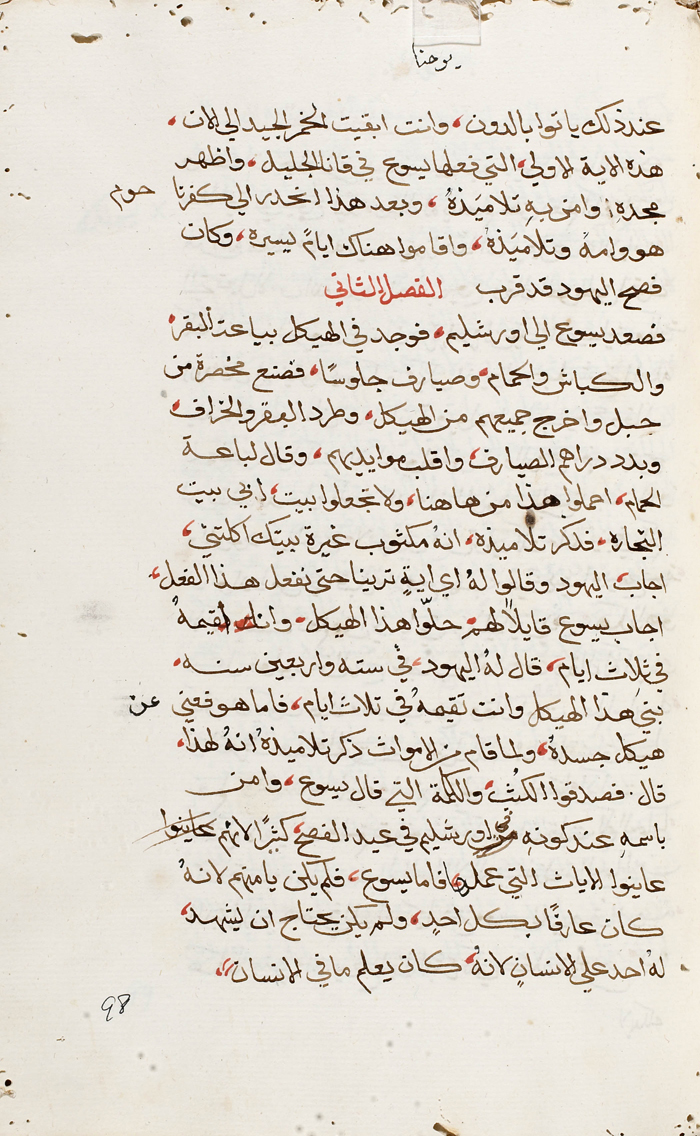 يوحنا
عند ذلك ياتوا بالدون، وانت ابقيت الخمر الجيد الي الان،
هذه الاية الاولي، التي فعلها يسوع في قانا الجليل، واظهر
مجده، وامن به تلاميذهُ، وبعد هذا انحدر الي كفرنا حوم
هو وامهُ وتلاميَذهُ، واقاموا هناك ايامً يسيرة، وكان
فصح اليهود قد قرب الفصل الثاني
فصعد يسوع الي اورشليم، فوجد في الهيكل بياعة البقر،
والكباش والحمام، وصيارف جلوسًا، فصنع مخصرة من
حبل واخرج جميعهم من الهيكل، وطرد البقر والخراف،
وبدد دراهم الصيارف، واقلب موايديهم، وقال لباعة
الحمام، احملوا هذا من هاهنا، ولا تجعلوا بيت، ابي بيت
التجارة، فذكر تلاميذه، انهُ مكتوب غيرة بيتك اكلتني،
اجاب اليهود وقالوا لهُ اي اية ترينا حتي تفعل هذا الفعل،
اجاب يسوع قايلاً لهم، حلّوا هذا الهيكل، وانا اقيمهُ
في ثلاث ايام، قال لهُ اليهود، في سته واربعين سنه،
بني هذا الهيكل وانت تقيمهُ في تلاث ايام، فاما هو فعني عن
هيكل جسدهُ، ولما قام من الاموات ذكر تلاميذهُ انهُ لهذا،
قال. فصدقوا الكتُب، والكلمة التي قال يسوع، وامن
باسمهِ عند كونهِ في اورشليم في عيد الفصح، كثيرًا لانهم عاينوا
عاينوا الايات التي عملها، فاما يسوع، فلم يكن يامنهم لانهُ
كان عارفًا بكل احدٍ، ولم يكن يحتاج ان يشهد،
لهُ احد علي الانسانِ لانهُ، كان يعلم ما في الانسان،
98